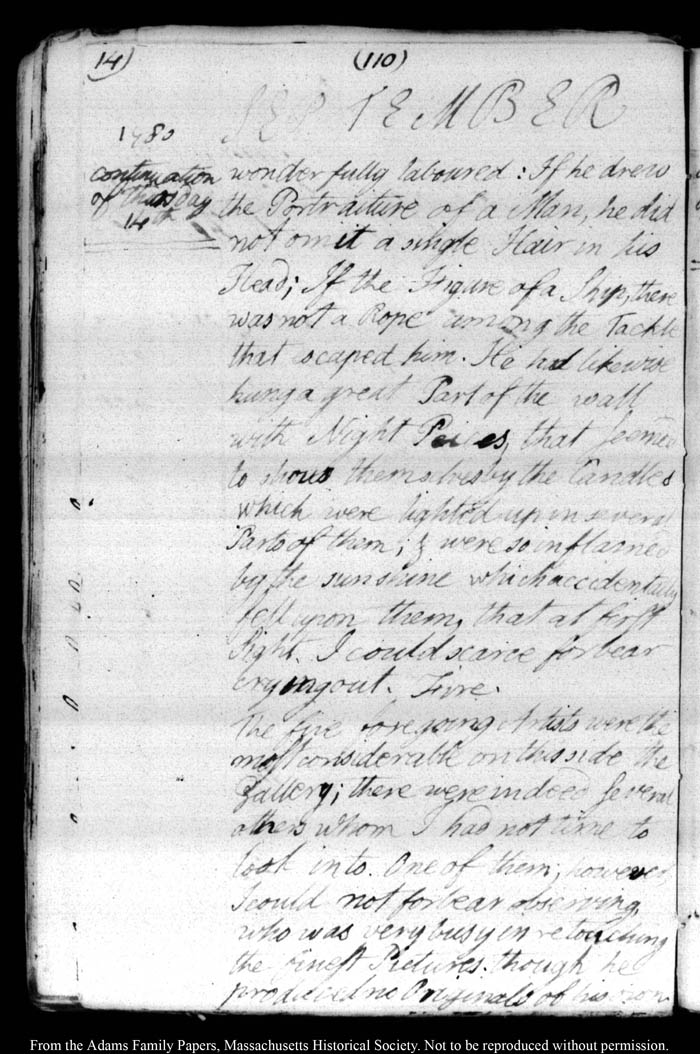 14) (110)
SEPTEMBER
1780
continuation
of thursday
14th
wonderfully laboured: If he drew
the Portraiture of a Man, he did
not omit a single Hair in his
Head; If the Figure of a Ship, there
was not a Rope among the Tackle
that escaped him. He had likewise
hung a great Part of the wall
with Night Peices, that seemed
to show themselves by the Candles
which were lighted up in several
Parts of them; & were so inflamed
by the sunshine which accidentally
fell upon them, that at first
sight. I could scarce forbear
crying out. Fire.
the five foregoing Artists were the
most considerable on this side the
Gallery; there were indeed several
others whom I had not time to
look into. One of them, however,
I could not forbear observing,
who was very busy in retouching
the finest Pictures. though he
produced no Originals of his own
From the Adams Family Papers, Massachusetts Historical Society. Not to be reproduced without permission.